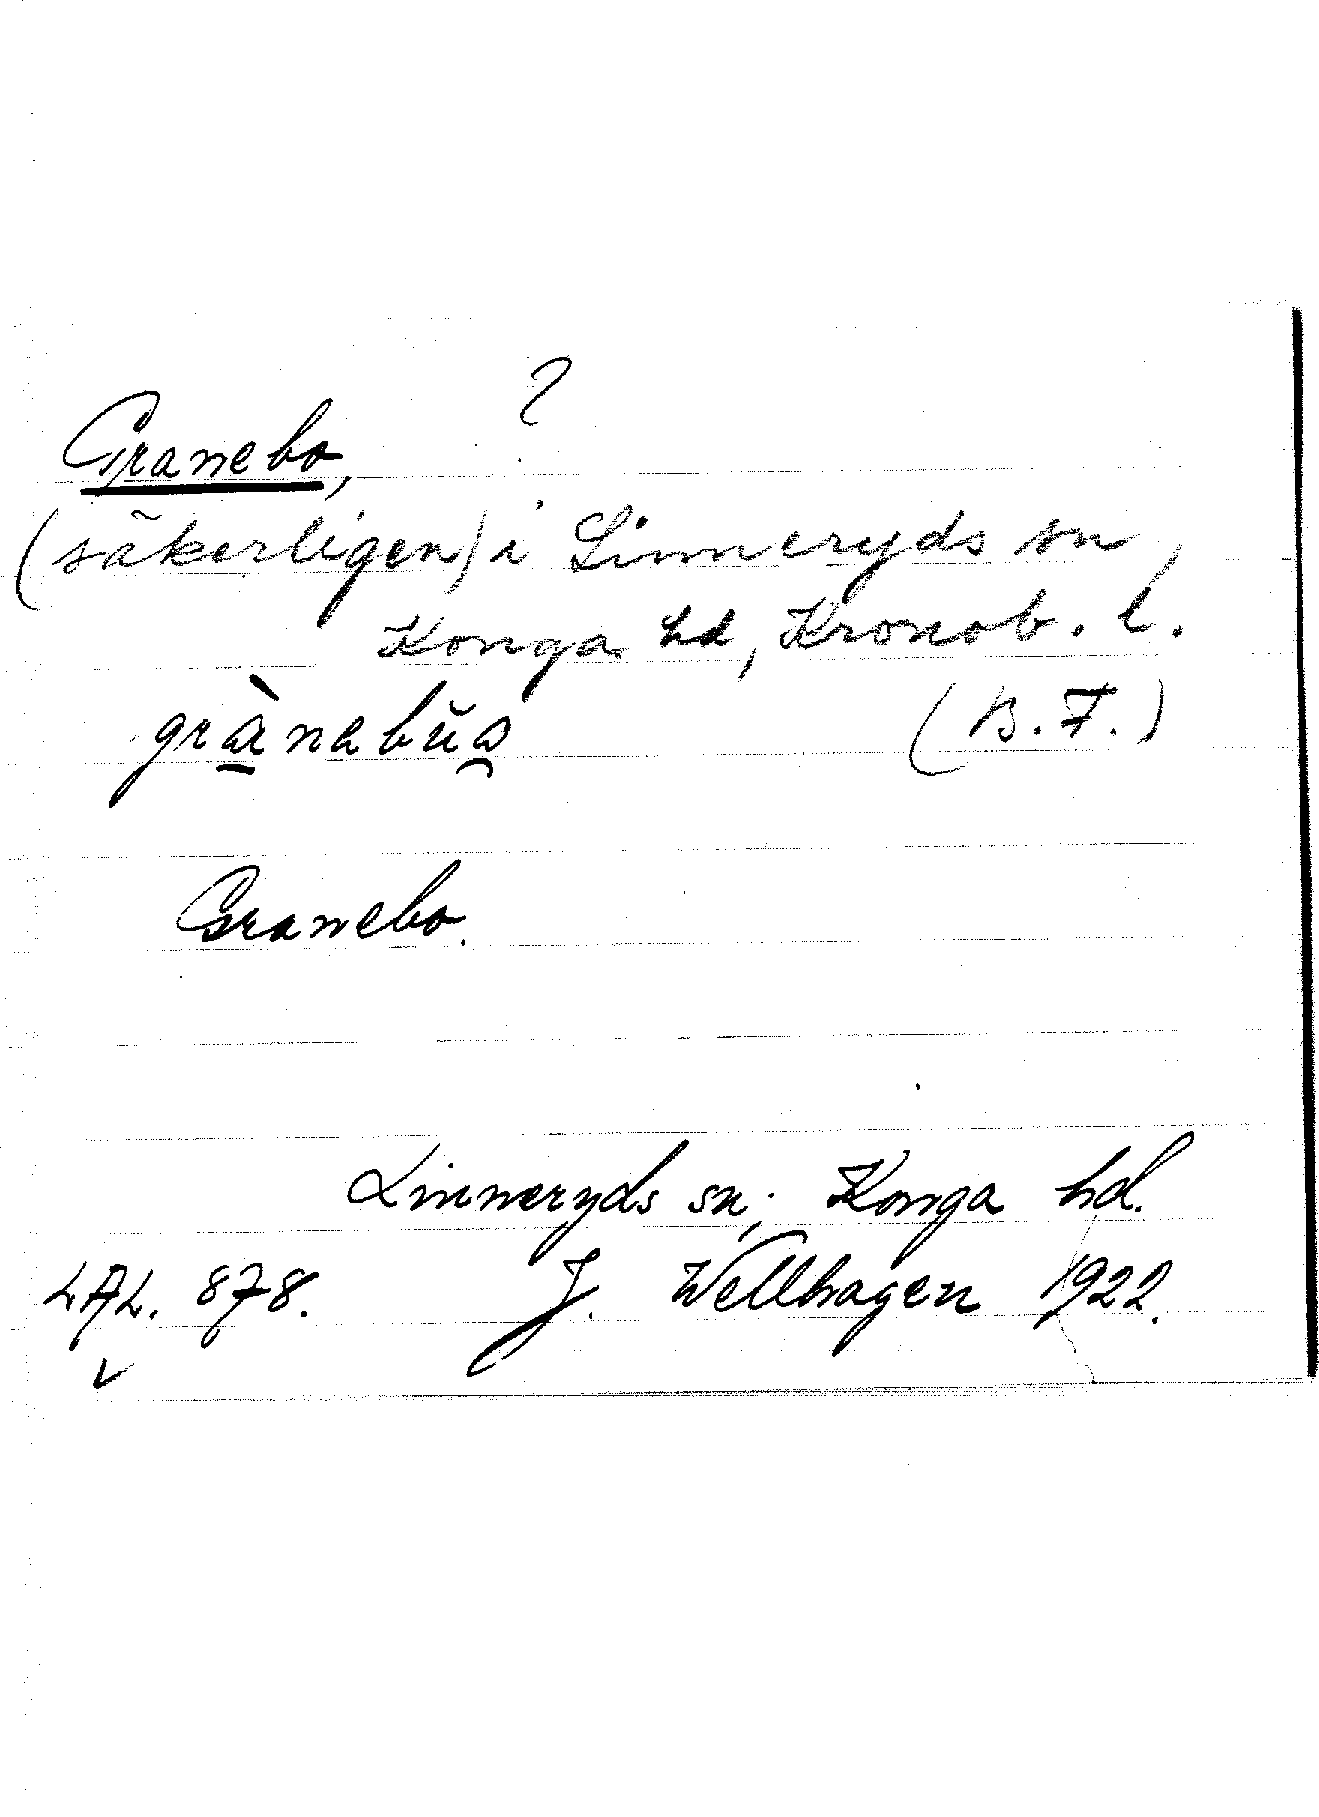 ?
Granebo,
(säkerligen) i Linneryds sn,
Konga hd, Kronob. l.
grànabŭa (B. F.)
Granebo.
Linneryds sn; Konga hd.
LAL. 878. J. Wellhagen 1922.